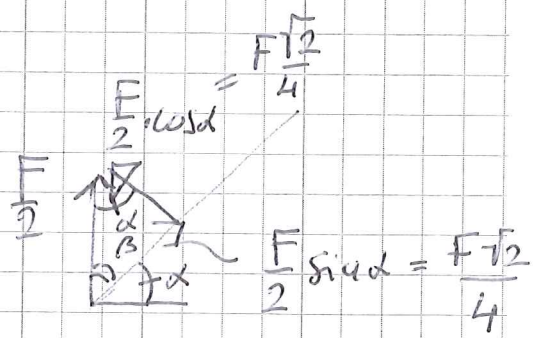 F/2 · cosα = F√2/4
F/2
α
β
α
F/2 sinα = F√2/4